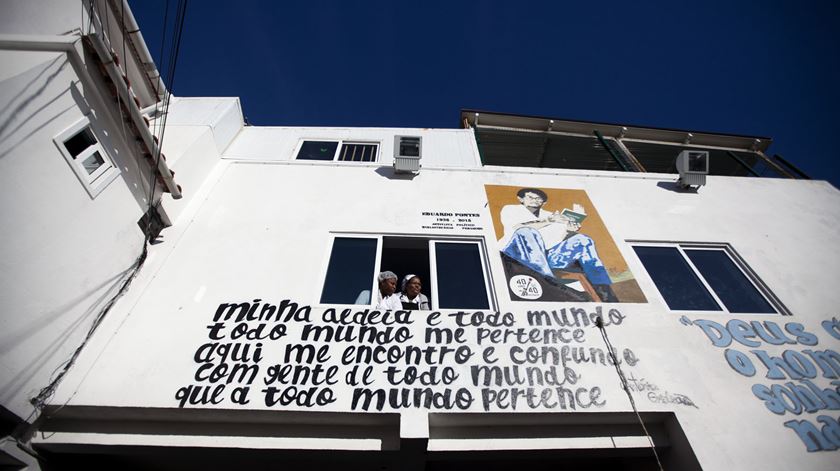 EDUARDO PONTES
1936 - 2015
ATIVISTA POLÍTICO
40
40
minha aldeia e todo mundo
todo mundo me pertence
aqui me encontro e confundo
com gente de todo mundo
que a todo mundo pertence
"Deus
o hom
sonha
na